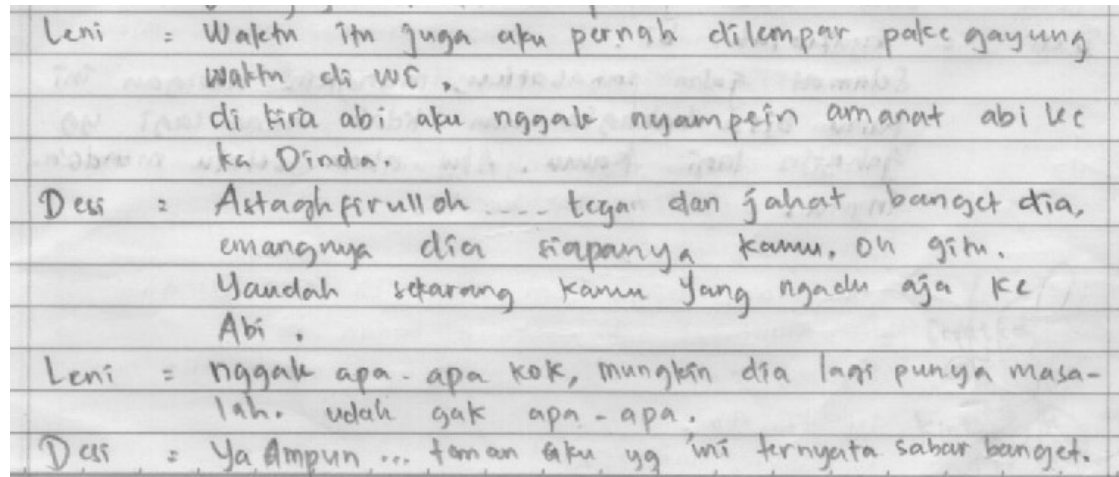 Leni : Waktu itu juga aku pernah dilempar pake gayung
waktu di WC.
di kira abi aku nggak nyampein amanat abi ke
ka Dinda.
Desi : Astaghfirulloh .... tega dan jahat banget dia,
emangnya dia siapanya kamu. Oh gitu.
Yaudah sekarang kamu yang ngadu aja ke
Abi.
Leni : nggak apa-apa kok, mungkin dia lagi punya masa-
lah. udah gak apa-apa.
Desi : Ya Ampun ... teman aku yg ini ternyata sabar banget.